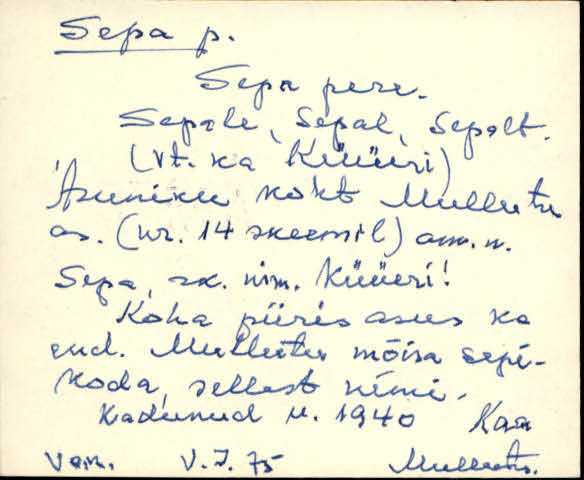 Sepa p.
Sepa pere.
Sepale, Sepal, Sepalt.
(vt. ka Küüeri)
Asuniku koht Mullutu
as. (nr. 14 skeemil) am. n.
Sepa, rk. nim. Küüeri!
Koha piires asus ka
end. Mullutu mõisa sepi-
koda, sellest nimi.
Kadunud u. 1940 Kaa
V. I. 75 Mullutu.